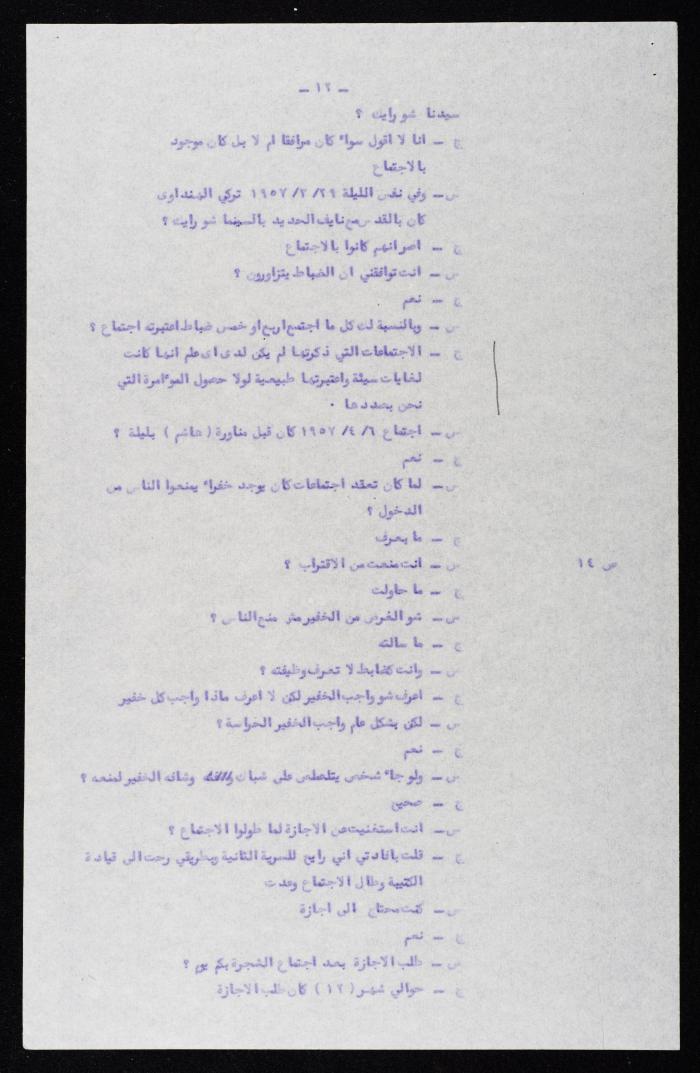 - ١٢ -
سيدنا شو رايك ؟
ج - انا لا اقول سواء كان مرافقا ام لا بل كان موجود
بالاجتماع
س - وفي نفس الليلة ٢٩/ ٣/ ١٩٥٧ تركي الهنداوى
كان بالقدس مع نايف الحديد بالسينما شو رايك ؟
ج - اصر انهم كانوا بالاجتماع
س - انت توافقني ان الضباط يتزاورون ؟
ج - نعم
س - وبالنسبة لك كل ما اجتمع اربع او خمس ضباط اعتبرته اجتماع ؟
ج - الاجتماعات التي ذكرتها لم يكن لدى اى علم انها كانت
لغايات سيئة واعتبرتها طبيعية لولا حصول الموءامرة التي
نحن بصددها .
س - اجتماع ٦/ ٤/ ١٩٥٧ كان قبل مناورة ( هاشم ) بليلة ؟
ج - نعم
س - لما كان تعقد اجتماعات كان يوجد خفراء يمنعوا الناس من
الدخول ؟
ج - ما بعرف
س - انت منعت من الاقتراب ؟
ص ١٤
ج - ما حاولت
س - شو الغرض من الخفير مش منع الناس ؟
ج - ما سالته
س - وانت كضابط لا تعرف وظيفته ؟
ج - اعرف شو واجب الخفير لكن لا اعرف ماذا واجب كل خفير
س - لكن بشكل عام واجب الخفير الحراسة ؟
ج - نعم
س - ولو جاء شخص يتلصلص على شباك وشافه الخفير لمنعه ؟
ج - صحيح
س - انت استغنيت عن الاجازة لما طولوا الاجتماع ؟
ج - قلت بافادتي اني رايح للسرية الثانية وبطريقي رحت الى قيادة
الكتيبة وطال الاجتماع وعدت
س - كنت محتاج الى اجازة
ج - نعم
س - طلب الاجازة بعد اجتماع الشجرة بكم يوم ؟
ج - حوالي شهر ( ١٢ ) كان طلب الاجازة